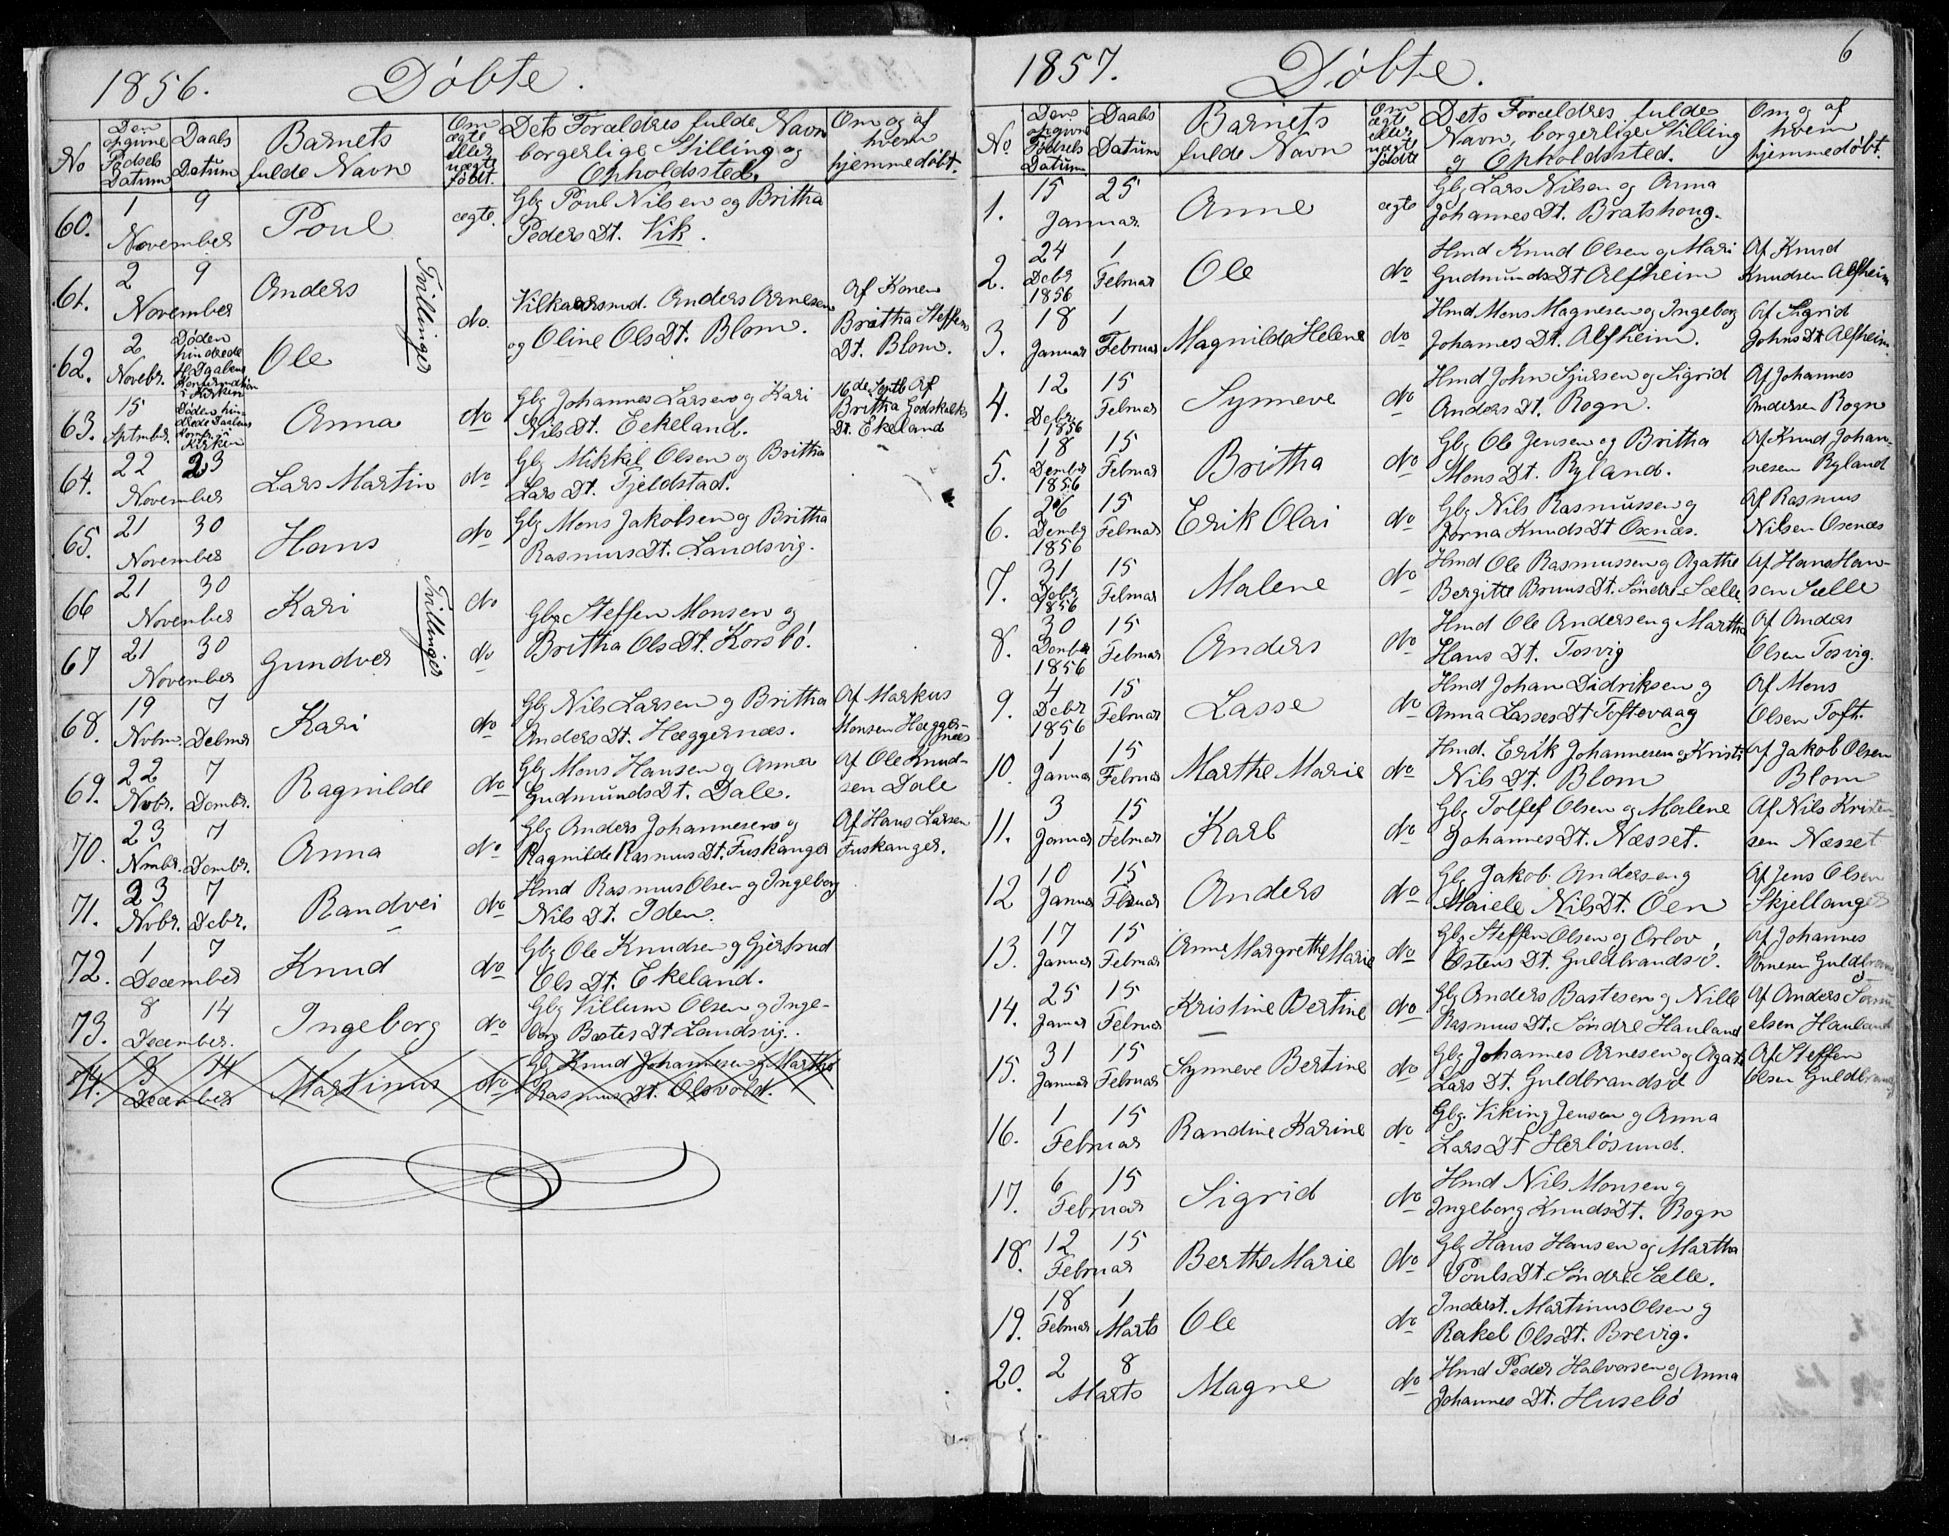 1856. Døbte.
No
Den opgivne Fødsels Datum
Daabs Datum
Barnets fulde Navn
Om ægte eller uægte født.
Dets Forældres fulde Navn borgerlige Stilling og Opholdssted.
Om og af hvem hjemmedøbt.
60. 1 9 November Poul ægte. Gbg Poul Nilsen og Britha
Peders Dt. Vik.
61. 2 9 November Anders Tvillinger do. Vilkaarsmd. Anders Arnesen Af Konen
og Oline Ols Dt. Blom. Britha Steffens
Dt. Blom.
62. 2 Novebr. Døden hindrede Daabens Konfirmation i Kirken Ole
63. 15 Sptmber. Døden hindrede Daabens Konfr. i Kirken Anna do Gbg Johannes Larsen og Kari 16de Septb Af
Nils Dt. Eekeland. Britha Godskalks
Dt. Ekeland
64. 22 23 November Lars Martin do Gbg Mikkel Olsen og Britha
Lars Dt. Fjeldstad.
65. 21 30 November Hans do Gbg Mons Jakobsen og Britha
Rasmus Dt. Landsvig.
66 21 30 November Kari Tvillinger do Gbg Steffen Monsen og
67 21 30 November Gundver do Britha Ols Dt. Korsbö.
68. 19 Novbr. 7 Debmr Kari do Gbg Nils Larsen og Britha Af Markus
Anders Dt. Hæggernæs. Monsen Hæggernæs
69. 22 Novbr. 7 Dembr. Ragnilde do Gbg Mons Hansen og Anna Af Ole Knud-
Gudmunds Dt. Dale. sen Dale
70. 23 Nmbr. 7 Dembr. Anna do Gbg Anders Johannesen og Af Hans Larsen
Ragnilde Rasmus Dt. Fuskanger Fuskanger.
71. 23 Novbr. 7 Debr. Randvei do Hmd Rasmus Olsen og Ingeborg
Nils Dt. Iden.
72. 1 7 December Knud do Gbg Ole Knudsen og Gjertrud
Ols Dt. Ekeland.
73. 8 14 December. Ingeborg do Gbg Villum Olsen og Inge-
borg Bastes Dt Landsvig.
74. 8 14 December Martinus do Gbg Knud Johannesen og Martha
Rasmus Dt. Olsvold.
1857. Døbte. 6
No
Den opgivne Fødsels Datum
Daabs Datum
Barnets fulde Navn
Om ægte eller uægte fødte
Dets Forældres fulde Navn, borgerlige Stilling og Opholdssted.
Om og af hvem hjemmedøbt.
1. 15 25 Januar Anne ægte Gbg Lars Nilsen og Anna
Johannes Dt. Bratshoug.
2. 24 Debr 1856 1 Februar Ole do Hmd Knud Olsen og Mari Af Knud
Gudmunds Dt Alfheim Knudsen Alfheim
3. 18 Januar 1 Februar Magnilde Helene do Hmd Mons Magnesen og Ingeborg Af Sigrid
Johannes Dt. Alfheim. Johns Dt Alfheim.
4. 12 Debr 1856 15 Februar Synneve do Hmd John Sjursen og Sigrid Af Johannes
Anders Dt. Rogn. Andersen Rogn
5. 18 Dember 1856 15 Februar Britha do Gbg Ole Jensen og Britha Af Knud Johan-
Mons Dt. Ryland. nesen Ryland
6. 26 Dembr 1856 15 Februar Erik Olai do Gbg Nils Rasmussen og Af Rasmus
Jorna Knuds Dt Oxnæs. Nilsen Oxnæs
7. 31 Debr 1856 15 Februar Malene do Hmd Ole Rasmussen og Agathe Af Hans Han-
Bergitte Bruns Dt. Søndre Sælle sen Sælle
8. 30 Dember 1856 15 Februar Anders do Hmd Ole Andersen og Martha Af Anders
Hans Dt. Tosvig Olsen Tosvig.
9. 4 Debr 1856 15 Februar Lasse do Hmd Johan Didriksen og Af Mons
Anna Lasses Dt Toftevaag Olsen Toft.
10. 1 Januar 15 Februar Marthe Marie do Hmd. Erik Johannesen og Kristi Af Jakob Olsen
Nils Dt. Blom Blom
11. 3 Januar 15 Februar Karl do Gbg Tollef Olsen og Malene Af Nils Kristen-
Johannes Dt. Næsset. sen Næsset
12 10 Januar 15 Februar Anders do Gbg Jakob Andersen og Af Jens Olsen
Maiele Nils Dt. Oen Skjellanger
13. 17 Januar 15 Februar Anne Margrethe Marie do Gbg Steffen Olsen og Orlov Af Johannes
Ostens Dt. Guldbrandsö. Arnesen Guldbrands
14. 25 Januar 15 Februar Kristine Bertine do Gbg Anders Bastesen og Nille Af Anders
Rasmus Dt. Søndre Hauland elsen Hauland
15. 31 Januar 15 Februar Synneve Bertine do Gbg Johannes Arnesen og Agate Af Steffen
Lars Dt. Guldbrandsö Olsen Guldbrands
16. 1 15 Februar Randine Karine do Gbg. Viking Jensen og Anna
Lars Dt Herlösund.
17. 6 15 Februar Sigrid do Hmd Nils Monsen og
Ingeborg Knuds Dt. Rogn
18. 12 15 Februar Berthe Marie do Gbg Hans Hansen og Martha
Pouls Dt. Søndre Sælle.
19. 18 Februar 1 Marts Ole do Inderst. Martinus Olsen og
Rakel Ols Dt. Brevig.
20. 2 8 Marts Magne do Hmd Peder Halvorsen og Anna
Johannes Dt. Husebö